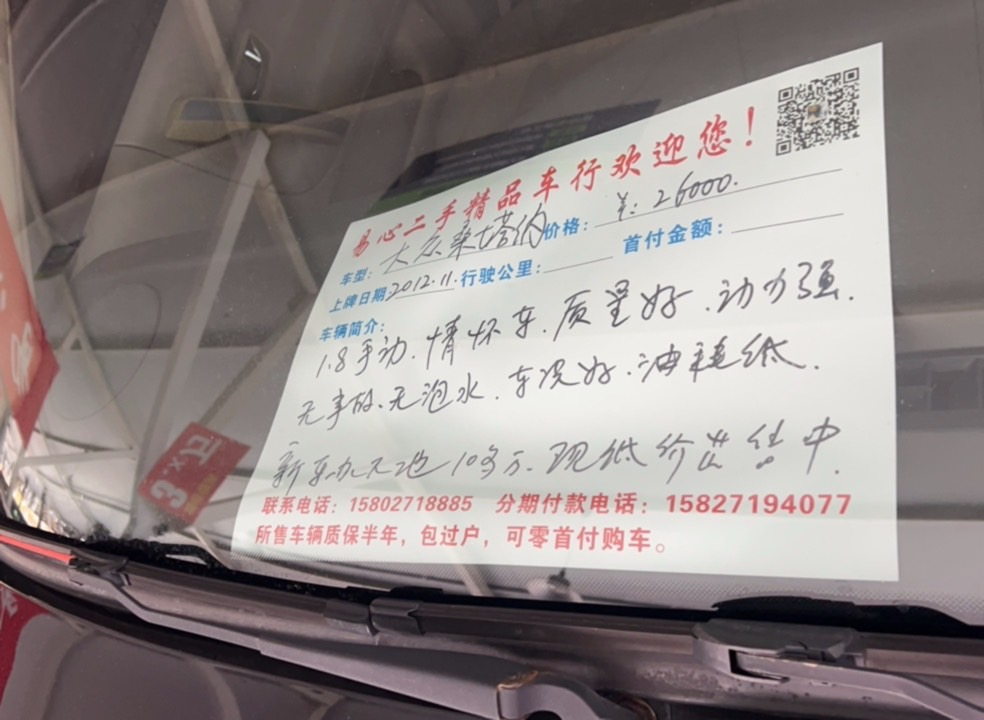 易心二手精品车行欢迎您！
车型：大众桑塔纳 价格：￥：26000.
上牌日期2012.11. 行驶公里： 首付金额：
车辆简介：
1.8手动.情怀车.质量好.动力强.
无事故.无泡水.车况好.油耗低.
新车办下地10多万.现低价出售中.
联系电话：15802718885 分期付款电话：15827194077
所售车辆质保半年，包过户，可零首付购车。